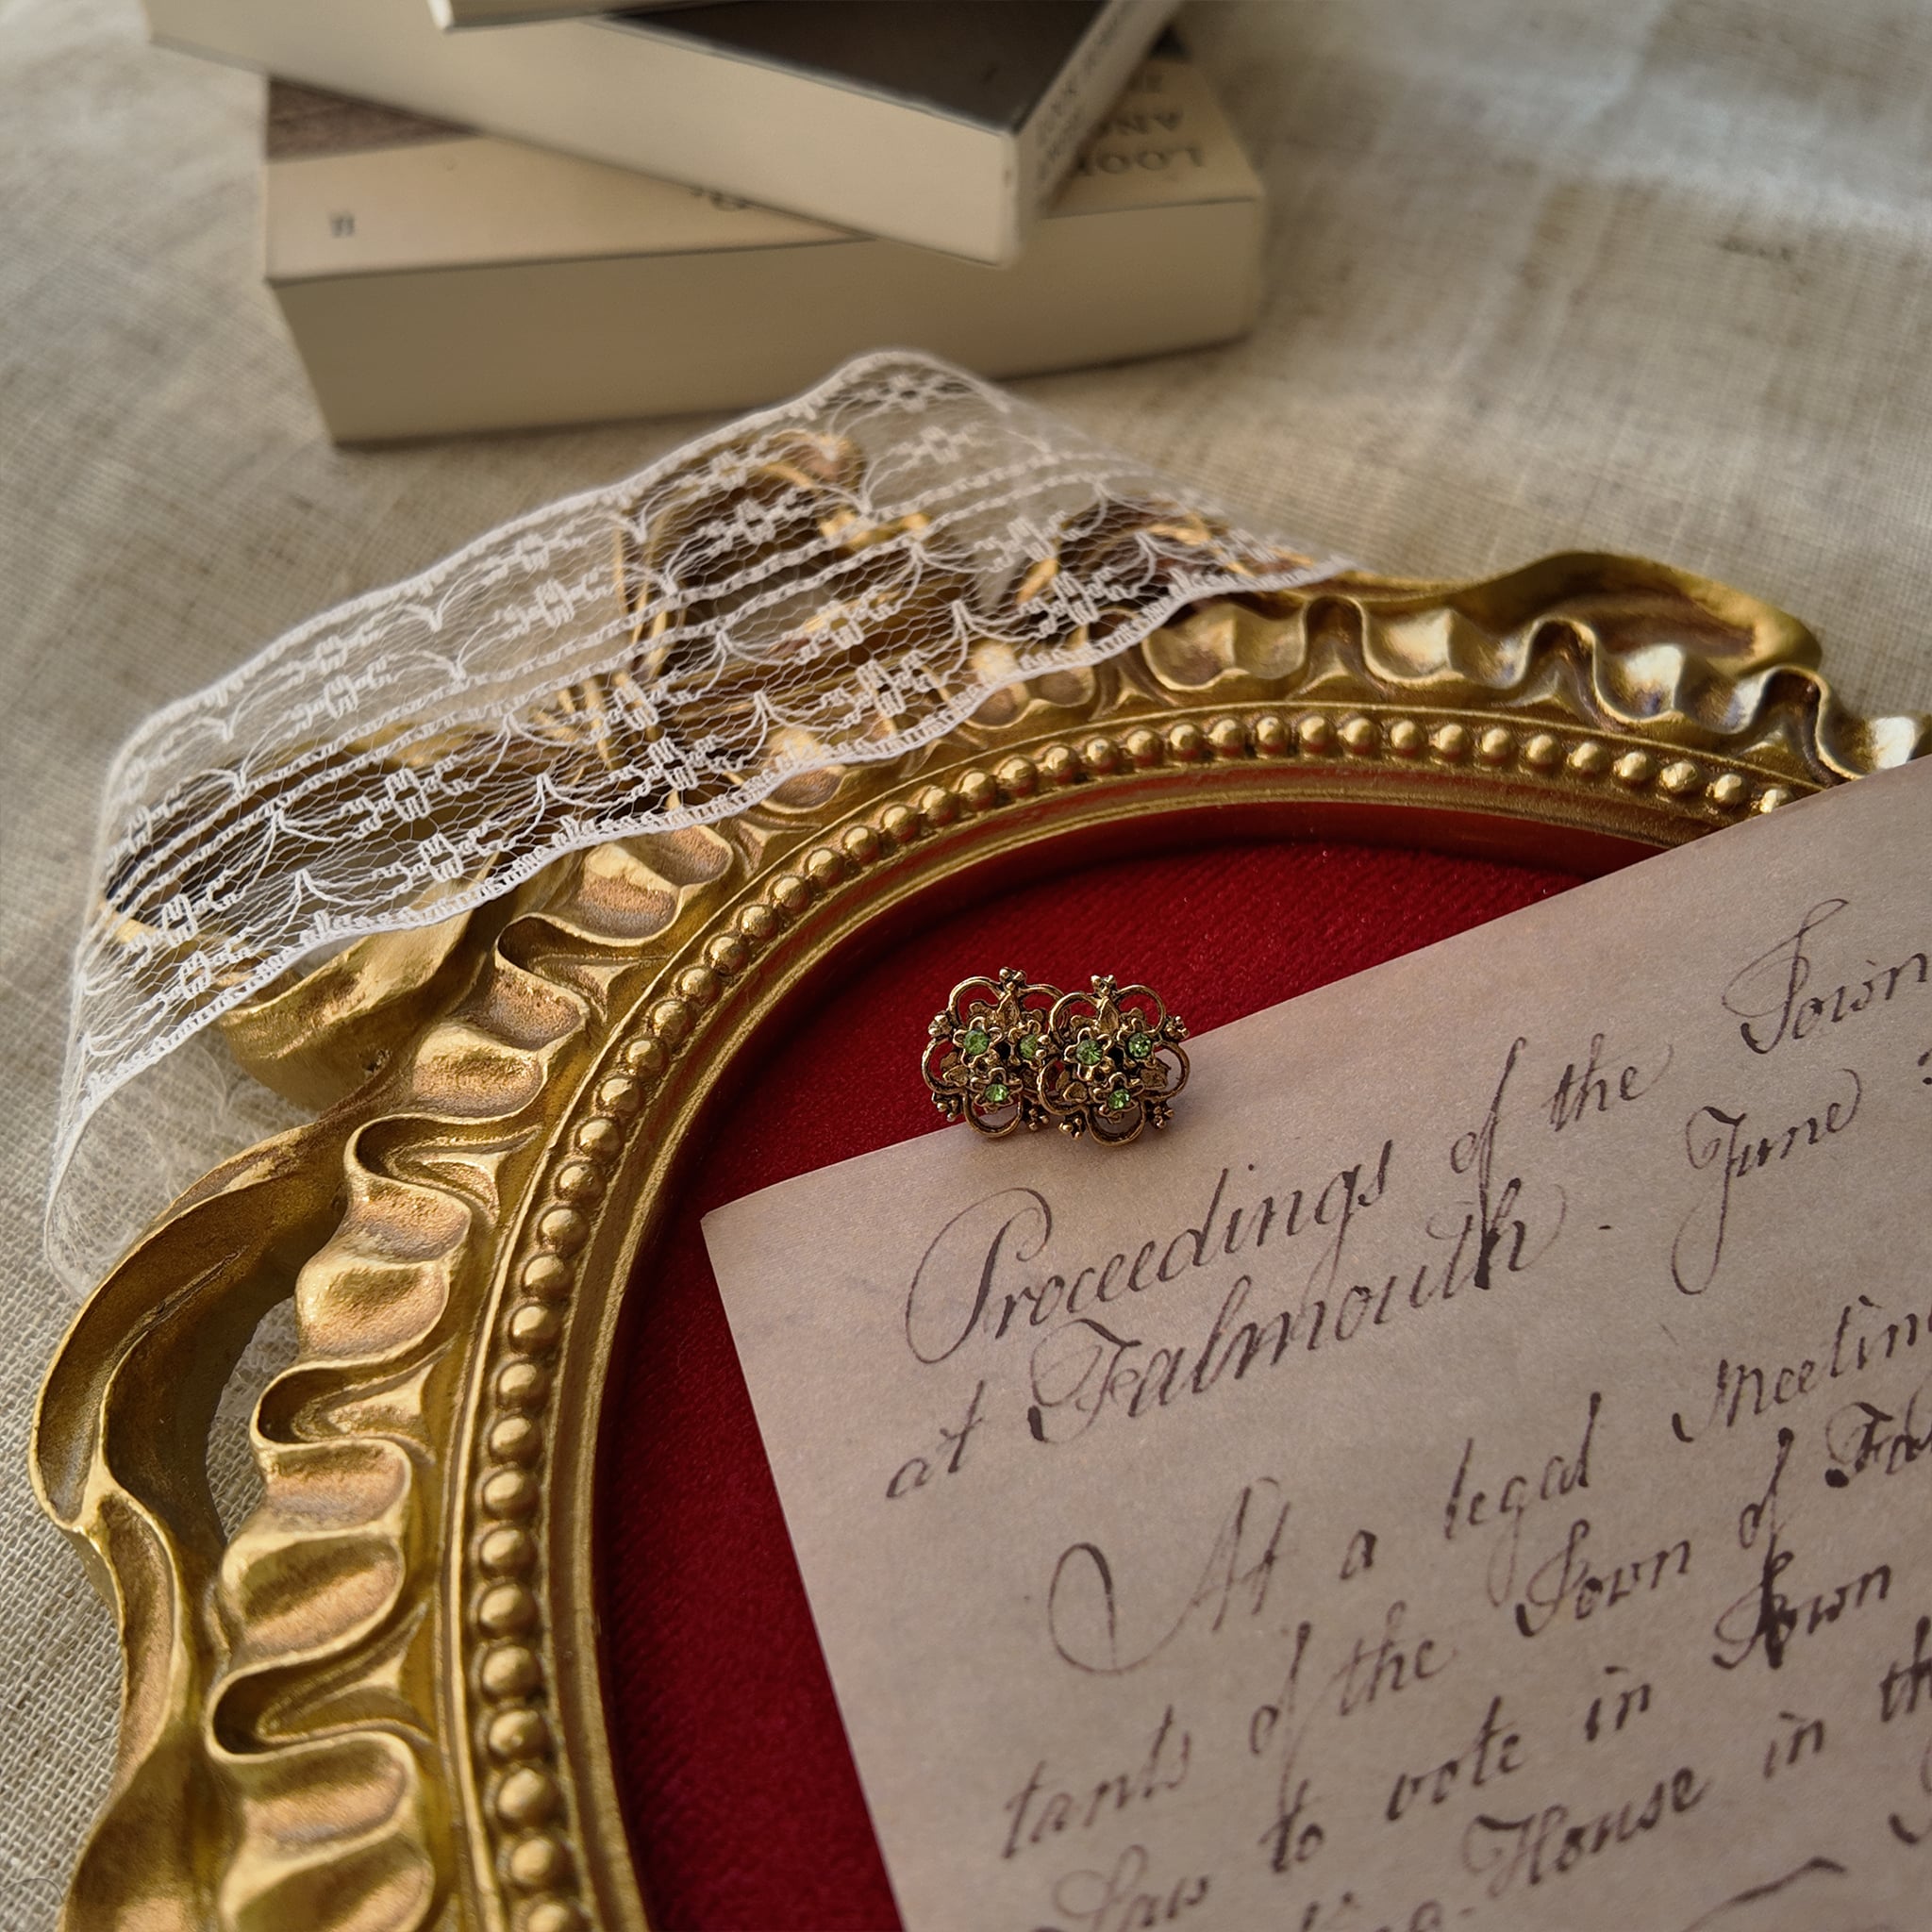 LOOK
AND
Proceedings of the Town
at Falmouth. June
At a legal Meeting
tants of the Town of Fal
Law to vote in Town
House in th